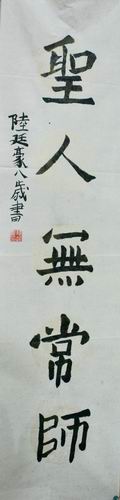 聖人無常師
陸廷豪八歲書